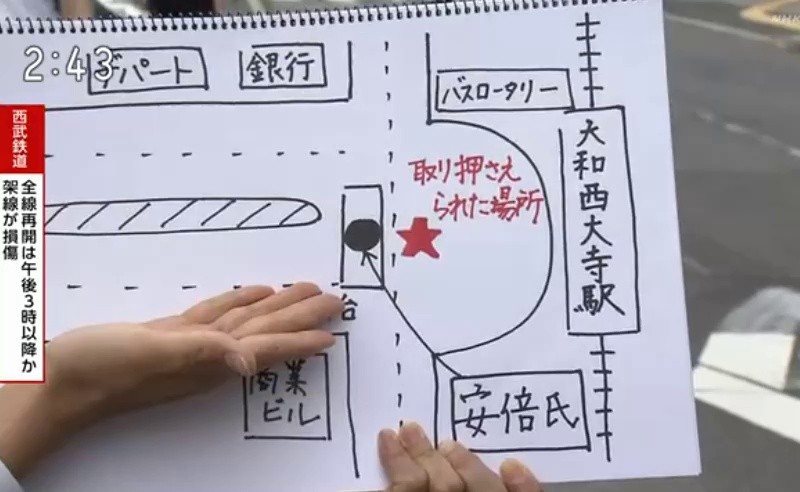 2:43
NHK
西武鉄道
全線再開は午後3時以降か
架線が損傷
デパート
銀行
バスロータリー
取り押さえ
られた場所
大和西大寺駅
台
商業
ビル
安倍氏